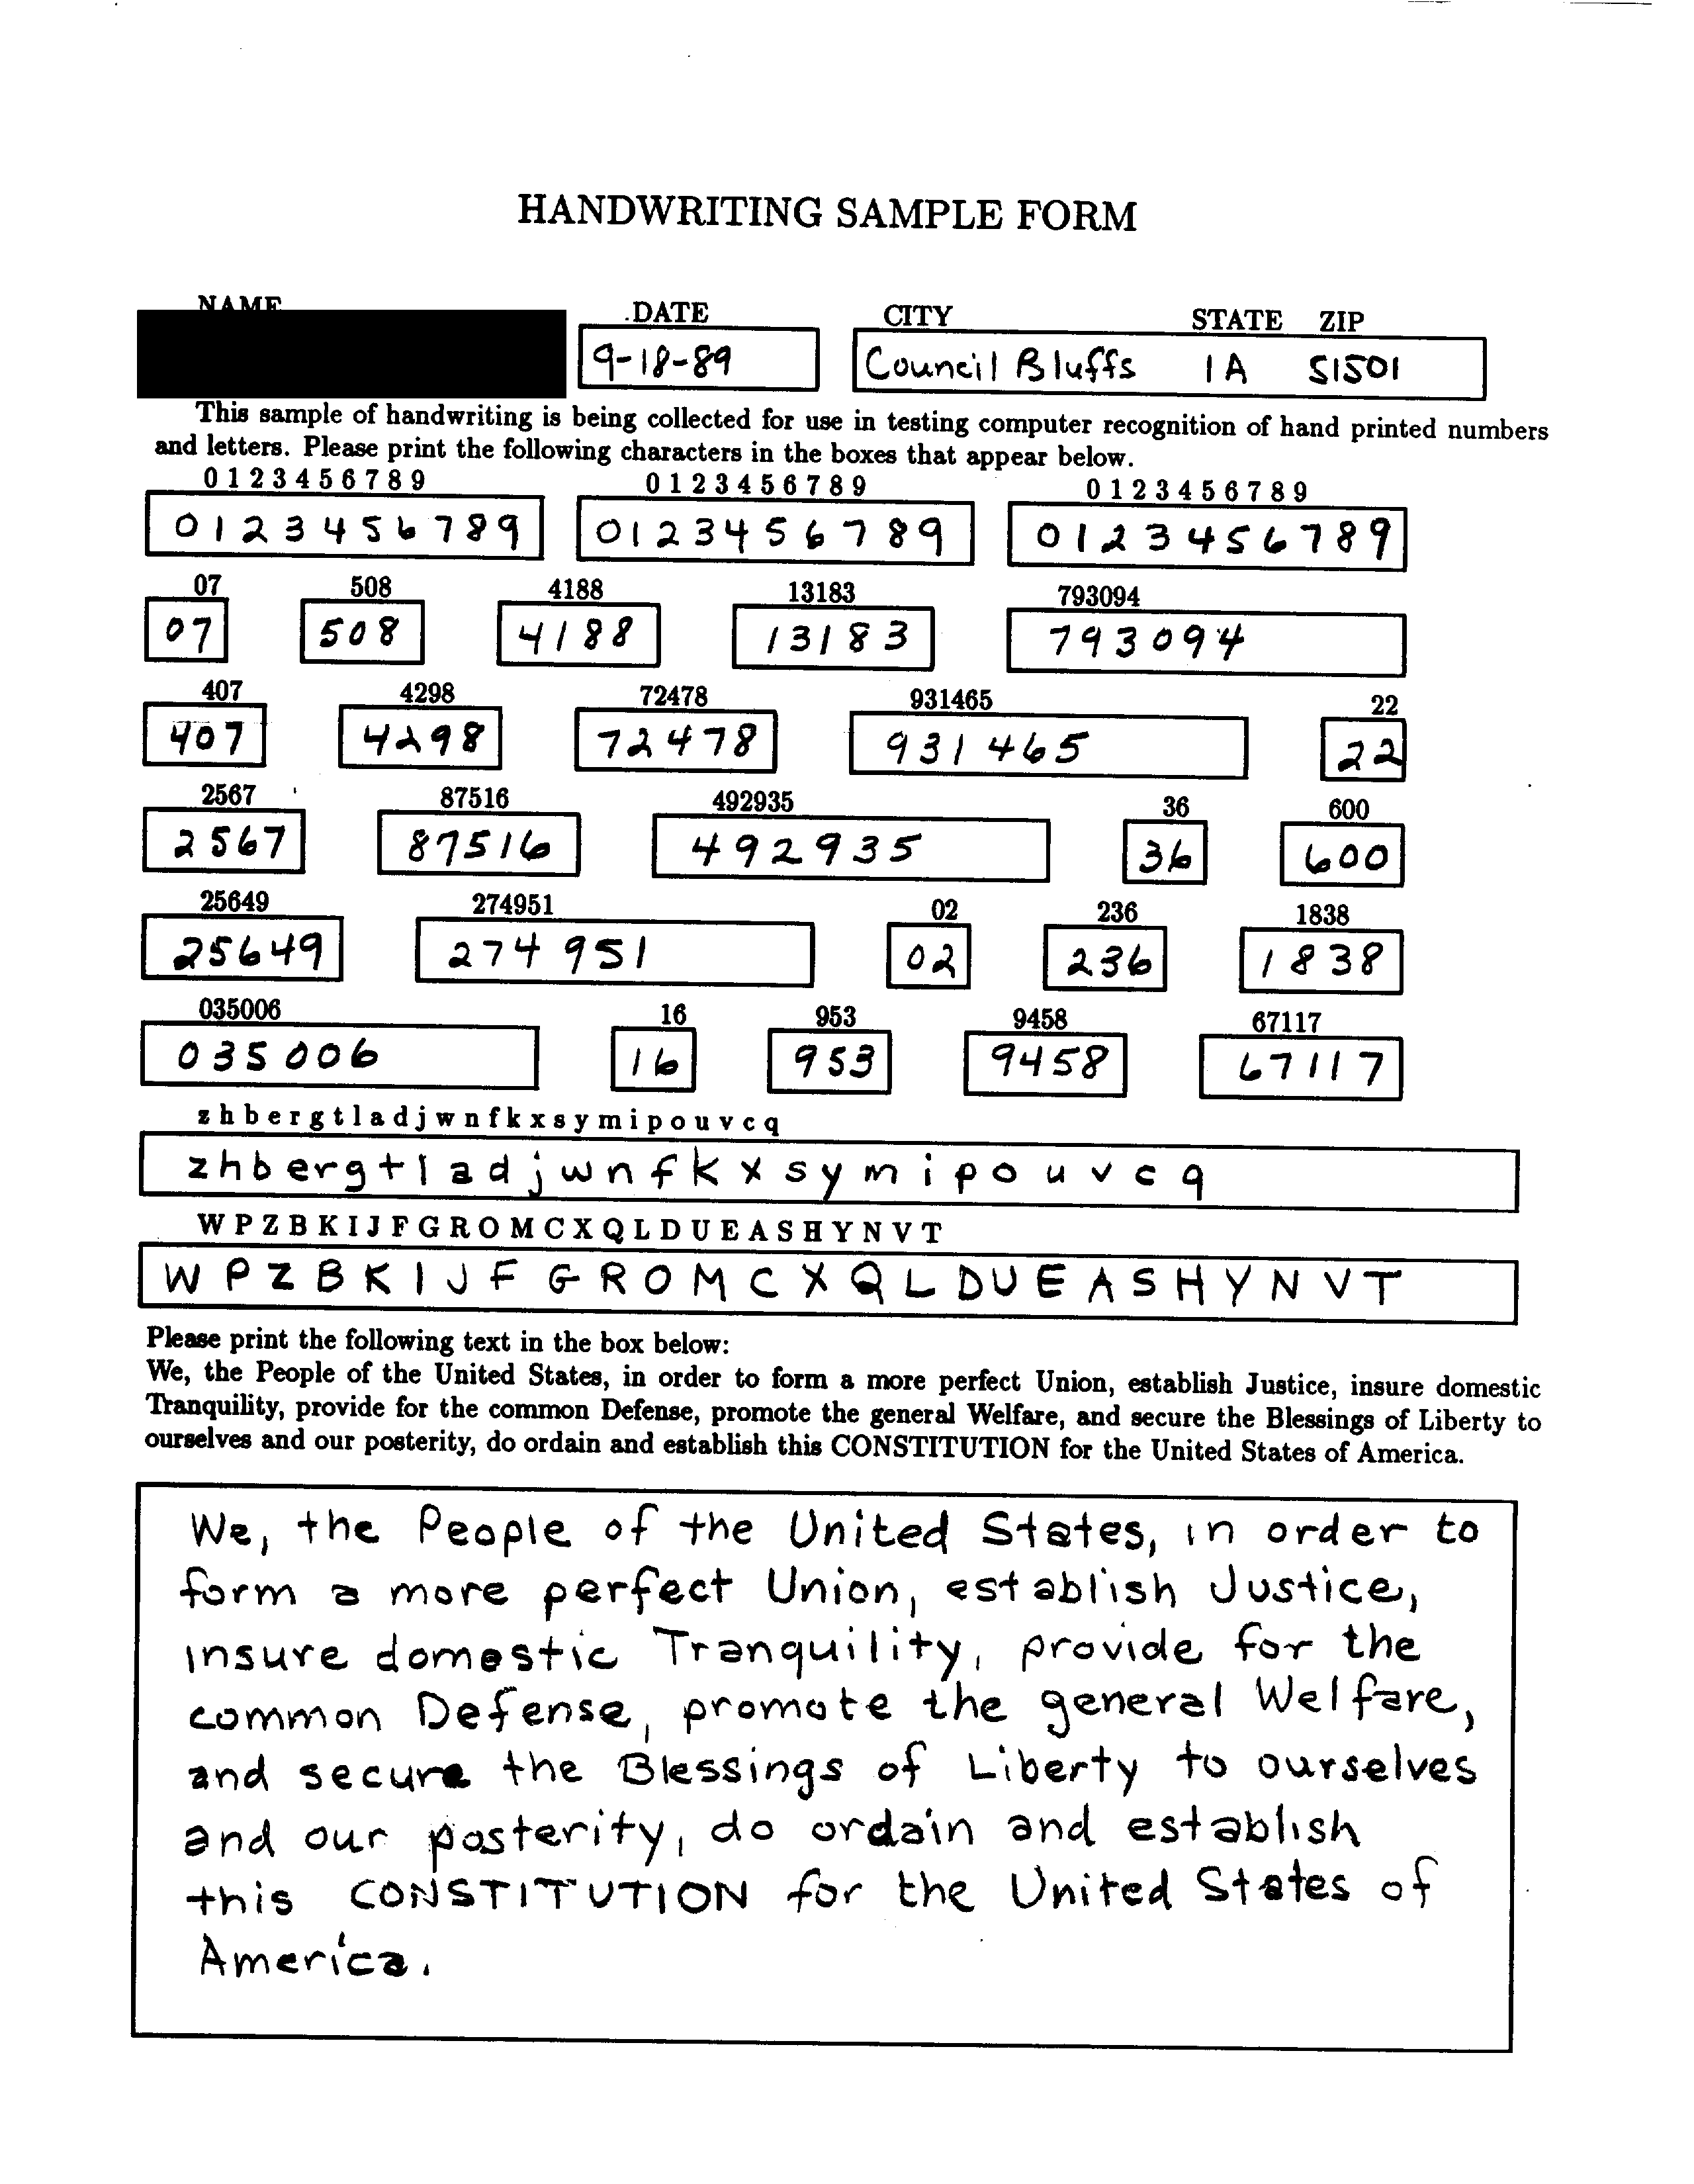 HANDWRITING SAMPLE FORM
NAME DATE CITY STATE ZIP
9-18-89 Council Bluffs IA 51501
This sample of handwriting is being collected for use in testing computer recognition of hand printed numbers
and letters. Please print the following characters in the boxes that appear below.
0 1 2 3 4 5 6 7 8 9 0 1 2 3 4 5 6 7 8 9 0 1 2 3 4 5 6 7 8 9
0 1 2 3 4 5 6 7 8 9 0 1 2 3 4 5 6 7 8 9 0 1 2 3 4 5 6 7 8 9
07 508 4188 13183 793094
07 508 4188 13183 793094
407 4298 72478 931465 22
407 4298 72478 931465 22
2567 87516 492935 36 600
2567 87516 492935 36 600
25649 274951 02 236 1838
25649 274951 02 236 1838
035006 16 953 9458 67117
035006 16 953 9458 67117
z h b e r g t l a d j w n f k x s y m i p o u v c q
z h b e r g t l a d j w n f k x s y m i p o u v c q
W P Z B K I J F G R O M C X Q L D U E A S H Y N V T
W P Z B K I J F G R O M C X Q L D U E A S H Y N V T
Please print the following text in the box below:
We, the People of the United States, in order to form a more perfect Union, establish Justice, insure domestic
Tranquility, provide for the common Defense, promote the general Welfare, and secure the Blessings of Liberty to
ourselves and our posterity, do ordain and establish this CONSTITUTION for the United States of America.
We, the People of the United States, in order to
form a more perfect Union, establish Justice,
insure domestic Tranquility, provide for the
common Defense, promote the general Welfare,
and secure the Blessings of Liberty to ourselves
and our posterity, do ordain and establish
this CONSTITUTION for the United States of
America.